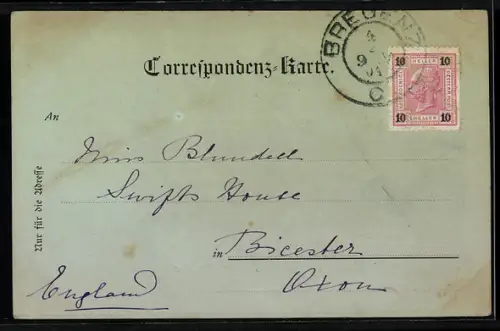 BREGENZ
4
2
9
01
C
Correspondenz-Karte.
10 10
HELLER
10 10
An
Miss Blundell
Swifts House
in Bicester
Oxon
England
Nur für die Adresse